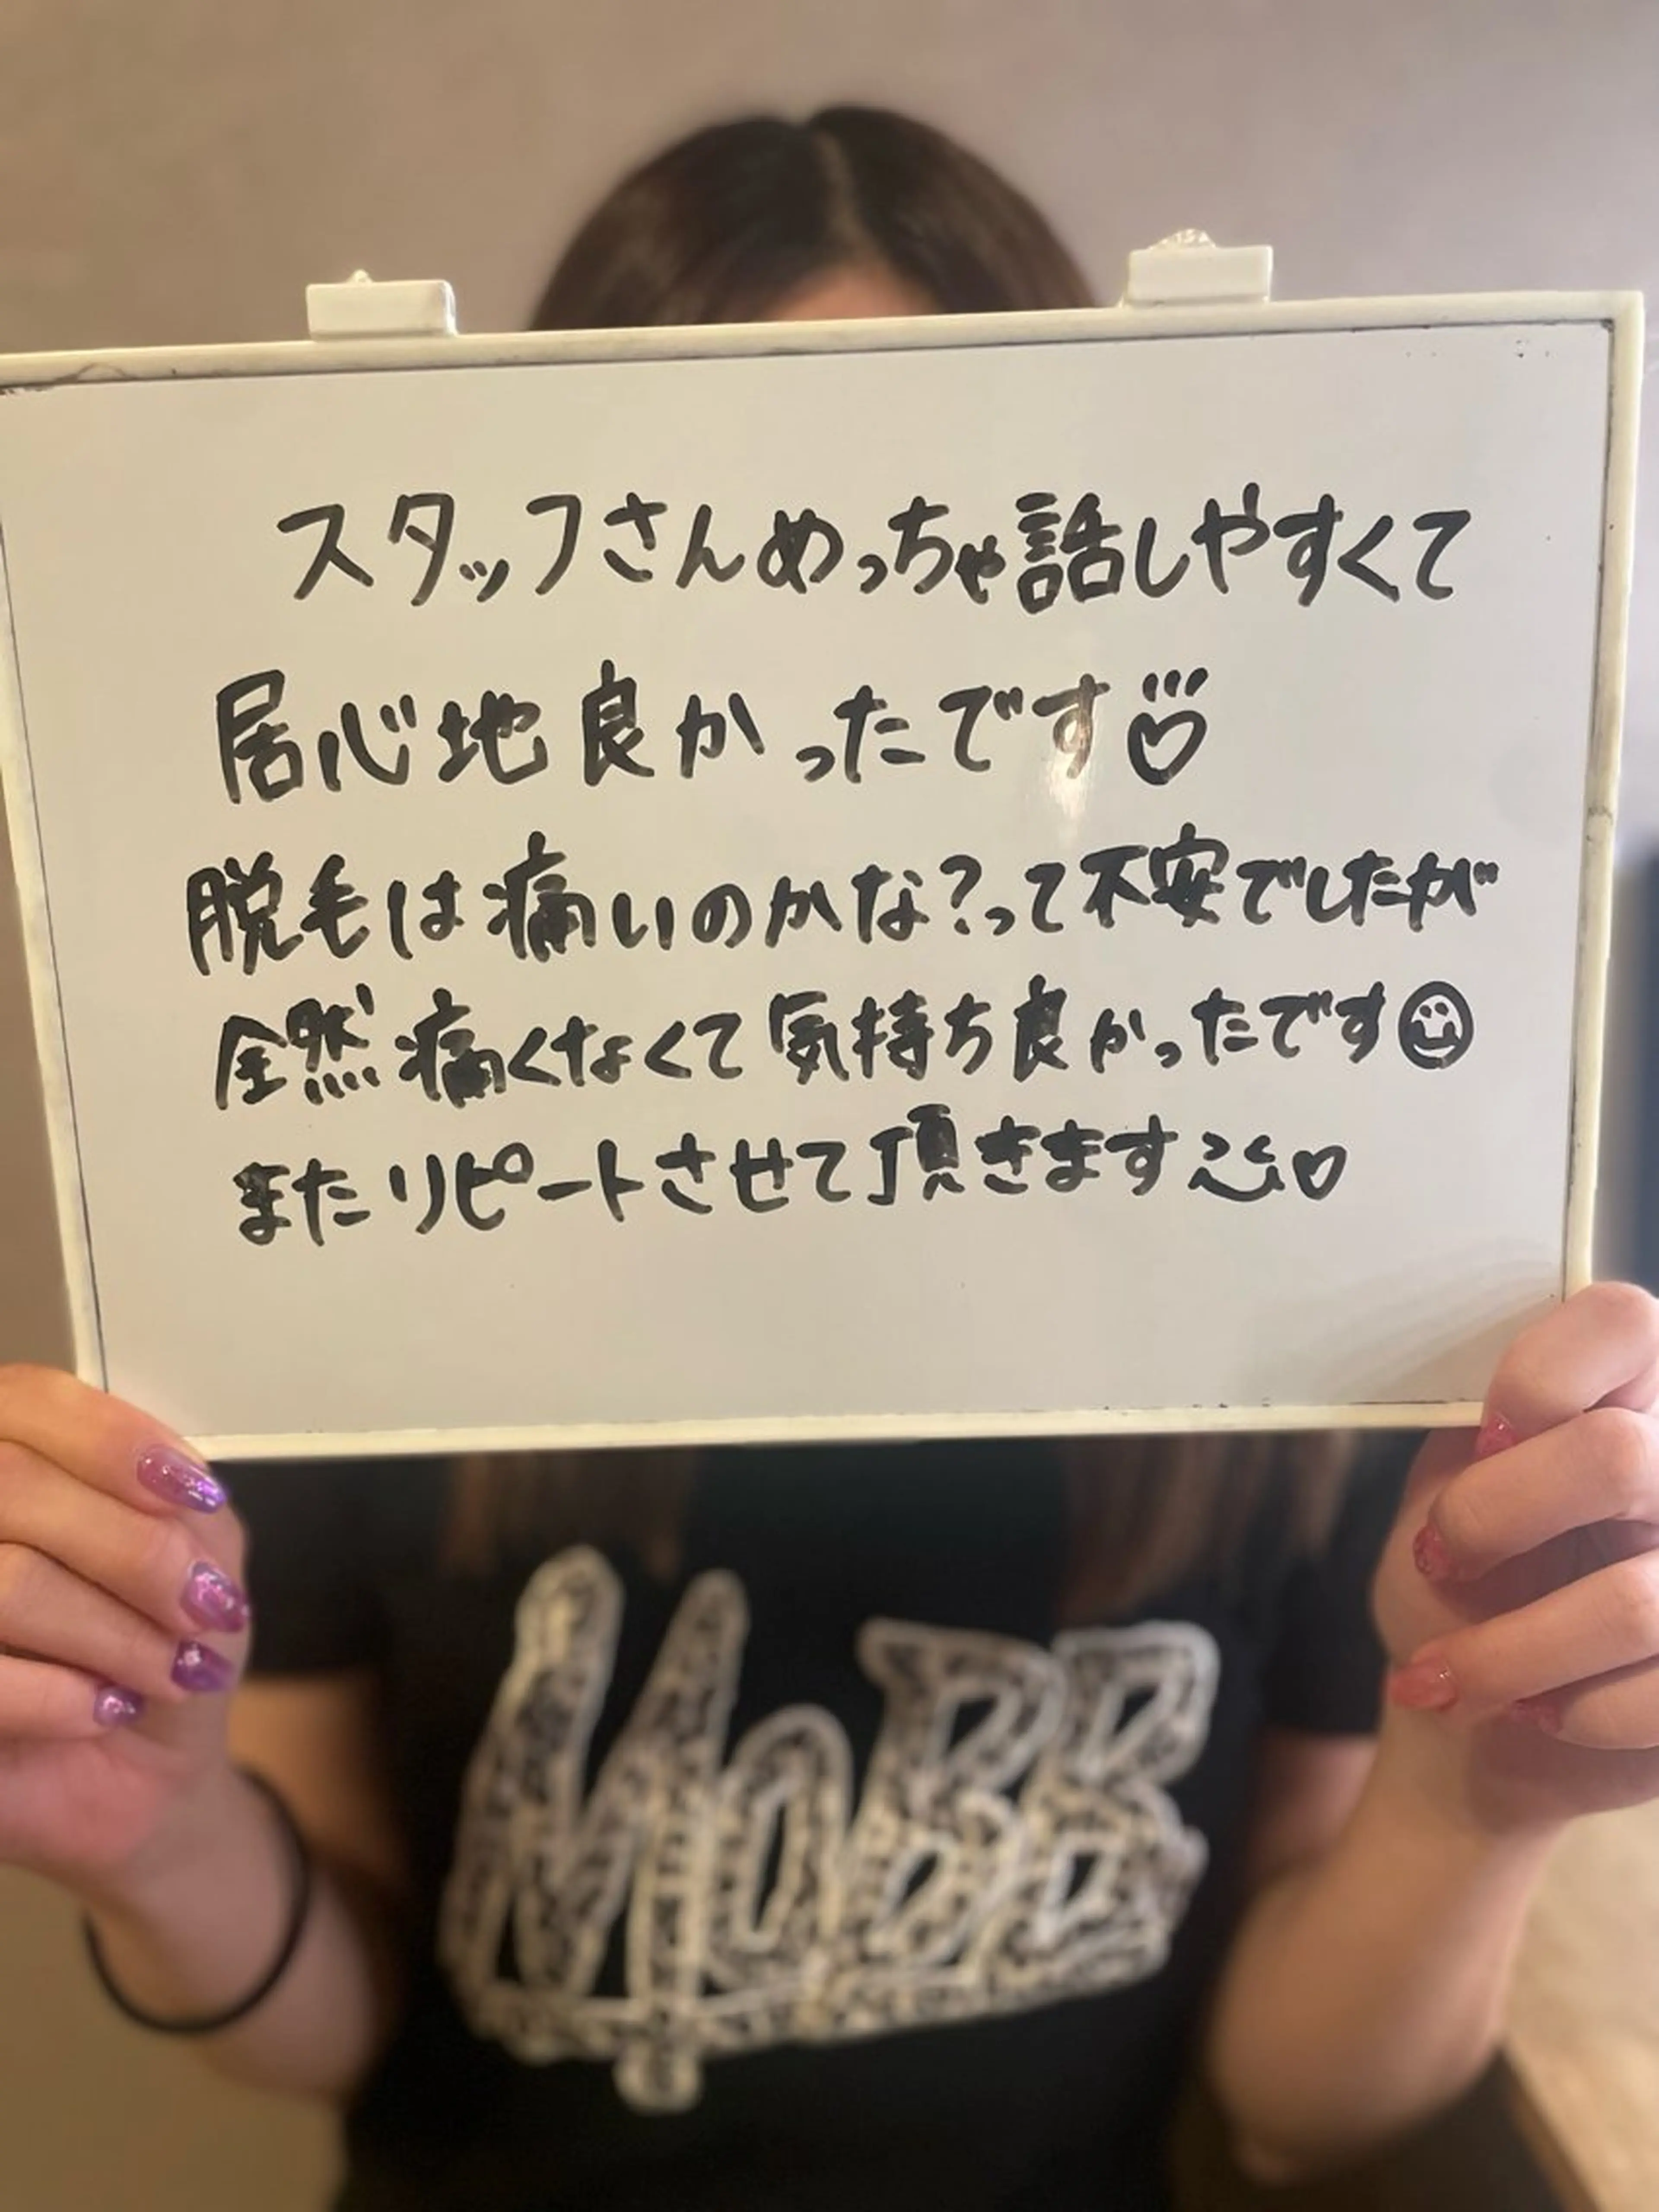 スタッフさんめっちゃ話しやすくて
居心地良かったです
脱毛は痛いのかな?って不安でしたが
全然痛くなくて気持ち良かったです
またリピートさせて頂きます